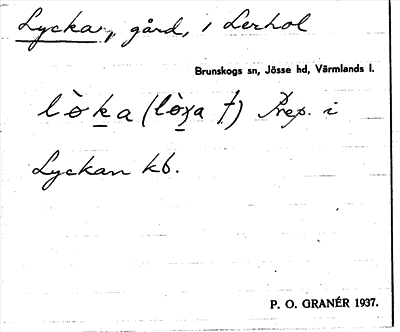 Lyckan, gård, i Lerhol
Brunskogs sn, Jösse hd, Värmlands l.
lò̀ka (lòxa †) Prep. i
Lyckan kb.
P. O. GRANÉR 1937.